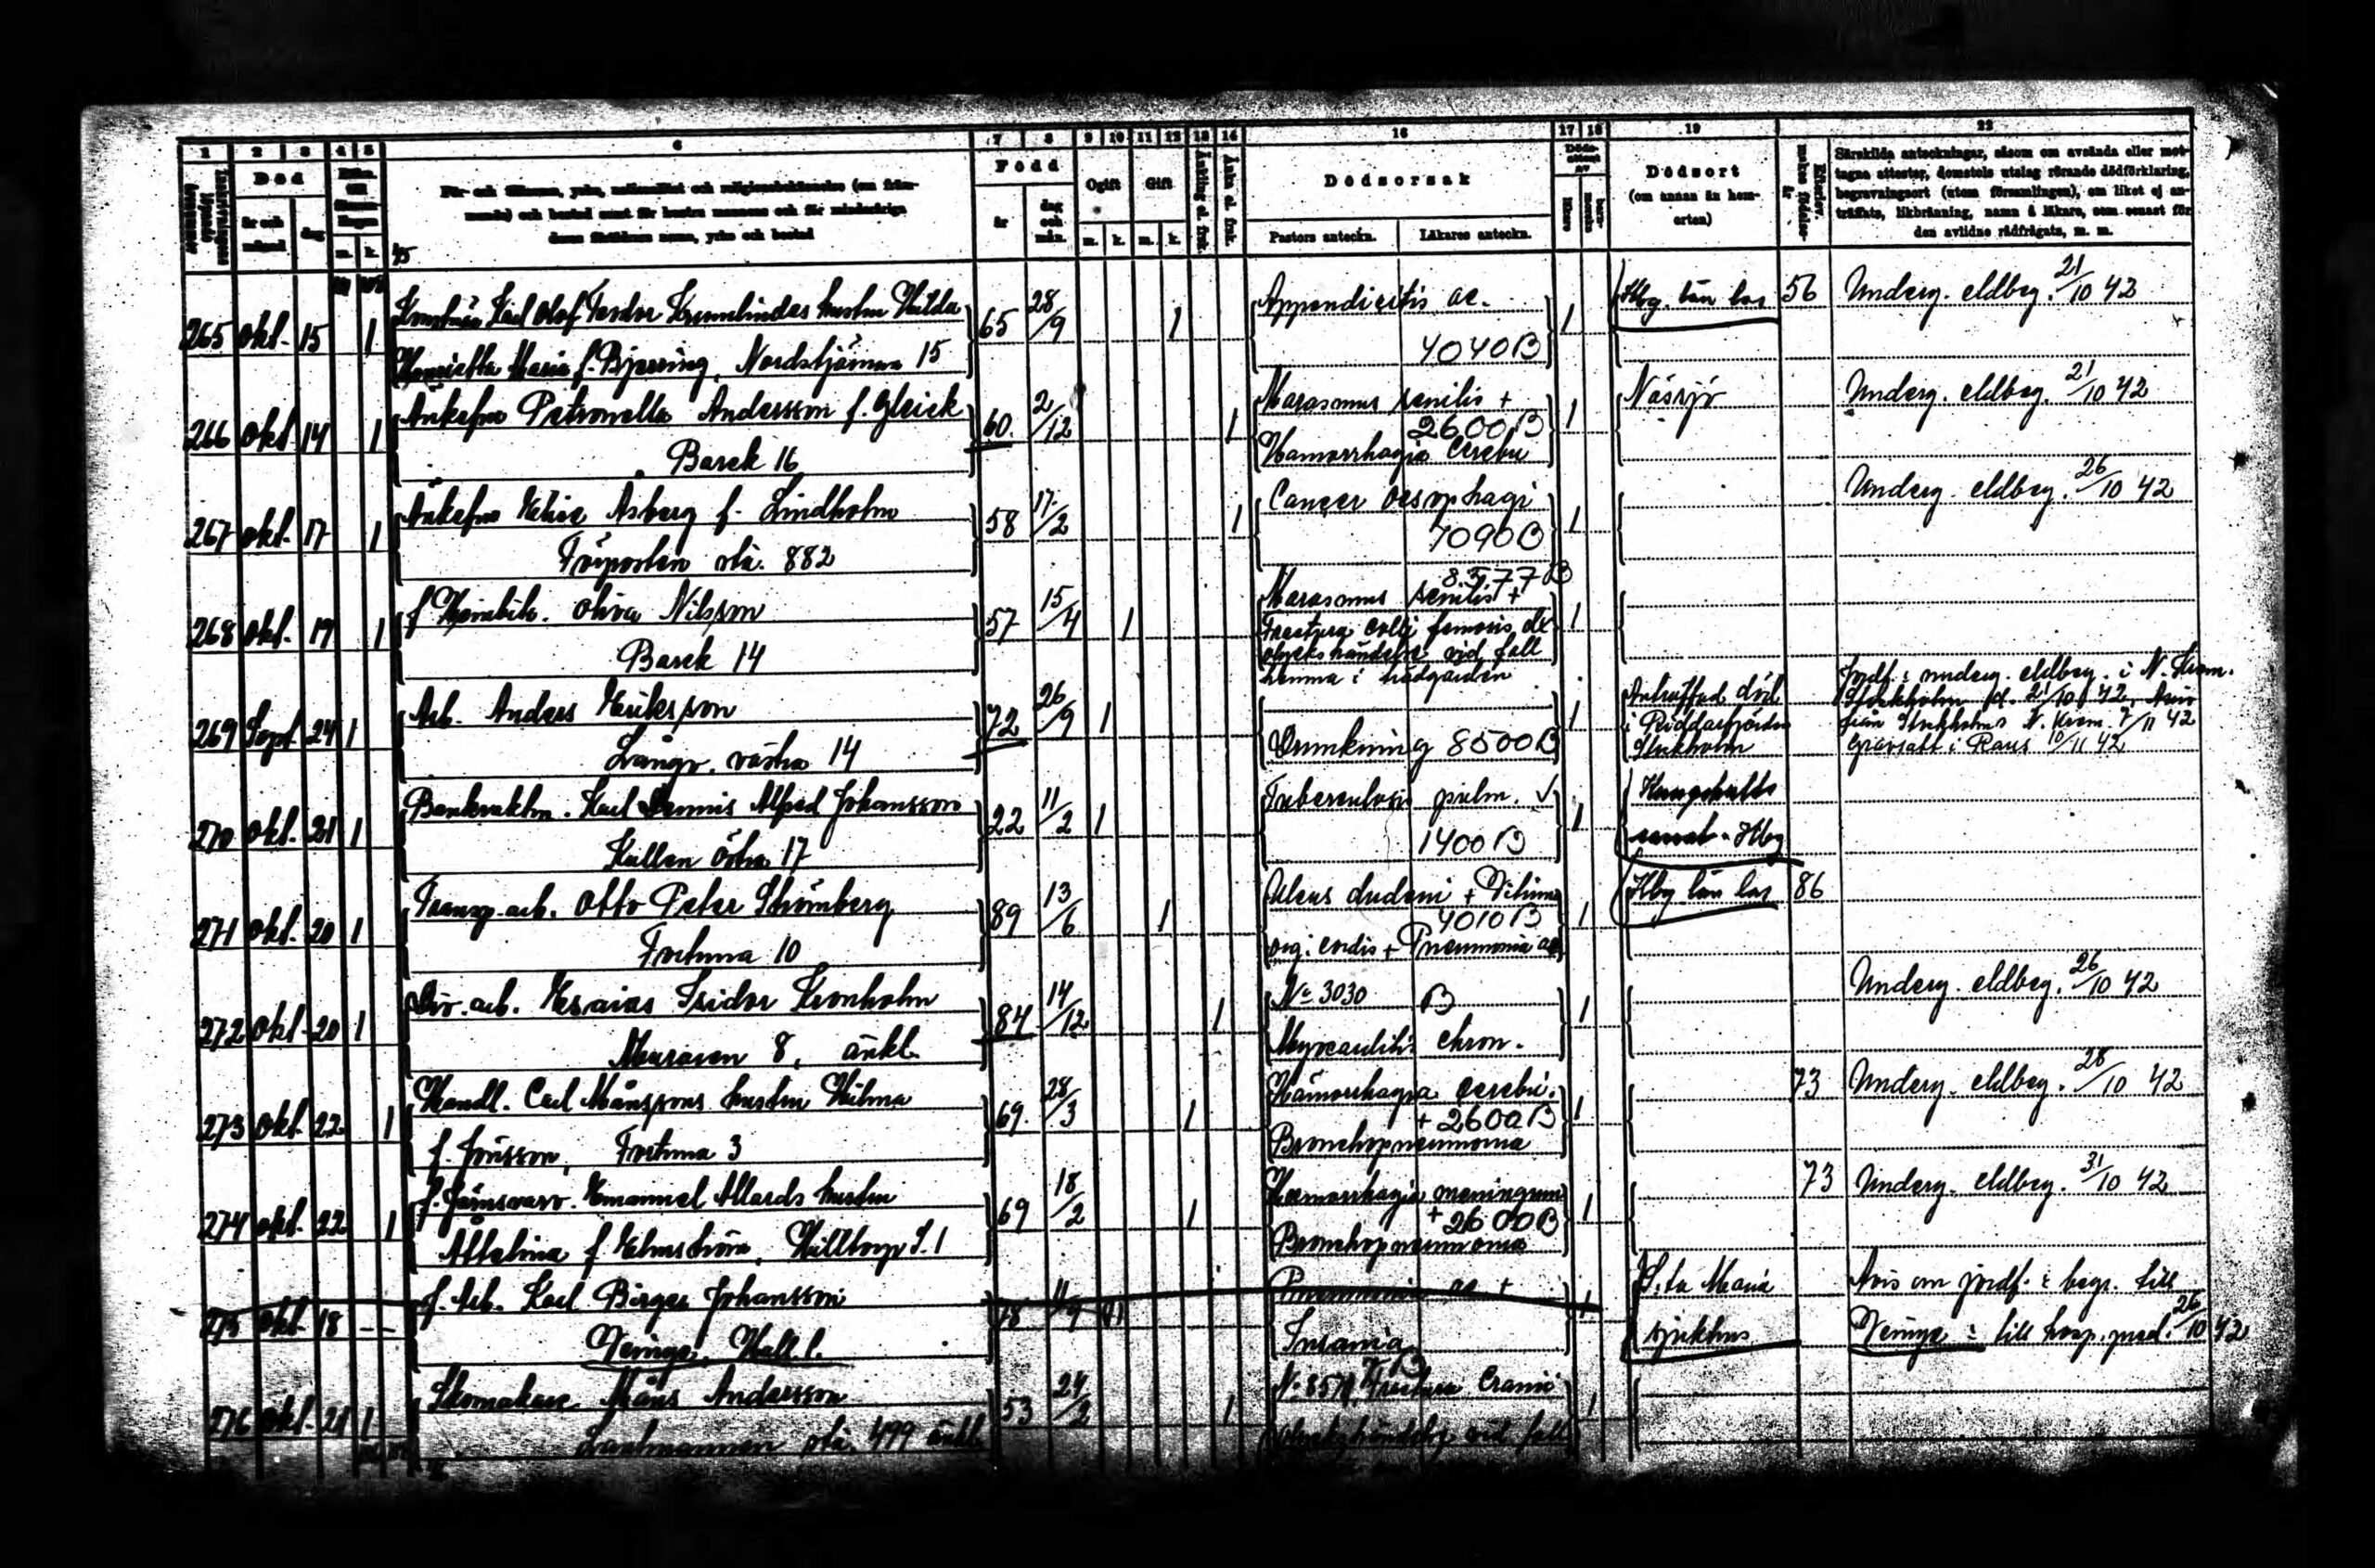 1 2 3 4 5 6 7 8 9 10 11 12 13 14 16 17 18 19 22
Död
Född
Ogift Gift
Dödsorsak
Dödsort
(om annan än hem-
orten)
Särskilda anteckningar, såsom om avsända eller mot-
tagna attester, domstols utslag rörande dödförklaring,
begravningsort (utom församlingen), om liket ej an-
träffats, likbränning, namn å läkare, som senast för
den avlidne rådfrågats, m. m.
För- och tillnamn, yrke, nationalitet och religionsbekännelse (om främ-
mande) och bostad samt för hustru mannens och för minderåriga
deras föräldrars namn, yrke och bostad
år och månad dag m. k. år dag och mån. m. k. m. k.
Pastors anteckn. Läkares anteckn.
265 okt. 15 1 Karl Olof hustru Hilda 65 28/9 1 Appendicitis ac. 1 Hbg. län las 56 Underg. eldbeg. 21/10 42
Maria f. Bjerring, Nordstjärnan 15 4040 B
266 okt 14 1 Änkefru Petronella Andersson f. Gleick 60. 2/12 1 Marasmus senilis + 1 Nässjö Underg. eldbeg. 21/10 42
2600 B
Barek 16 Hämorrhagia Cerebri
267 okt. 17 1 Änkefru Elise Åsberg f. Lindholm 58 17/2 1 Cancer oesophagi 1 Underg. eldbeg. 26/10 42
stä. 882 7090 B
8577 B
268 okt. 19 1 f Oliva Nilsson 57 15/4 1 Marasmus senilis + 1
Fractura colli femoris dx
Barek 14 olyckshändelse vid fall
hemma i trädgården
269 Sept 24 1 Arb. Anders Eriksson 72 26/9 1 1 Anträffad död
i Riddarfjärden
Stockholm
Långv. västra 14 Drunkning 8500 B
Jordf. i underg. eldbeg. i N. Krem.
Stockholm d. 21/10 42.
från Stockholms N. Krem. 7/11 42
Gravsatt i Raus 10/11 42
270 okt. 21 1 Karl Dennis Alfred Johansson 22 11/2 1 Tuberculosis pulm. 1
Kullen östra 17 1400 B Hbg
271 okt. 20 1 Transp. arb. Otto Peter Strömberg 89 13/6 1 Ulcus duodeni + Vitium 1 Hbg län las 86
4010 B
Fortuna 10 org. cordis + Pneumonia ac
272 okt 20 1 Div. arb. Esaias Isidor Kronholm 84 14/12 1 No 3030 B 1 Underg. eldbeg. 26/10 42
8, änkl. Myocarditis chron.
273 okt. 22 1 Handl. Carl Månssons hustru Hilma 69. 28/3 1 Hämorrhagia cerebri. 1 73 Underg. eldbeg. 28/10 42
+ 2600 B
f. Jönsson, Fortuna 3 Bronchopneumonia
274 okt. 22 1 f. Emanuel Allards hustru 69 18/2 1 Haemorrhagia meningum 1 73 Underg. eldbeg. 31/10 42
+ 2600 B
Attalina f Elmström, Hilltorp S. 1 Bronchopneumonia
275 okt. 18 f. Arb. Karl Birger Johansson 18 11/9 1 Pneumonia ac + 1 S:ta Maria Avis om jordf. & begr. till
Veinge, Hall l. Insania sjukhus Veinge 26/10 42
276 okt. 21 1 Skomakare Måns Andersson 53 24/2 1 Fractura Cranii 1
Lantmannen stä. 499 änkl. olyckshändelse vid fall